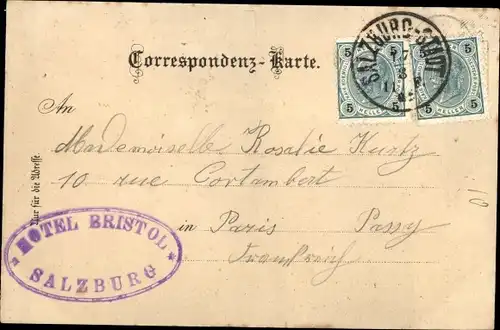 Correspondenz-Karte.
SALZBURG-STADT
5 5 5 5
5 5 5 5
HELLER HELLER
An
Mademoiselle Rosalie Kurtz
10 rue Cortambert
in Paris Passy
Frankreich
Nur für die Adresse.
HOTEL BRISTOL
SALZBURG
10